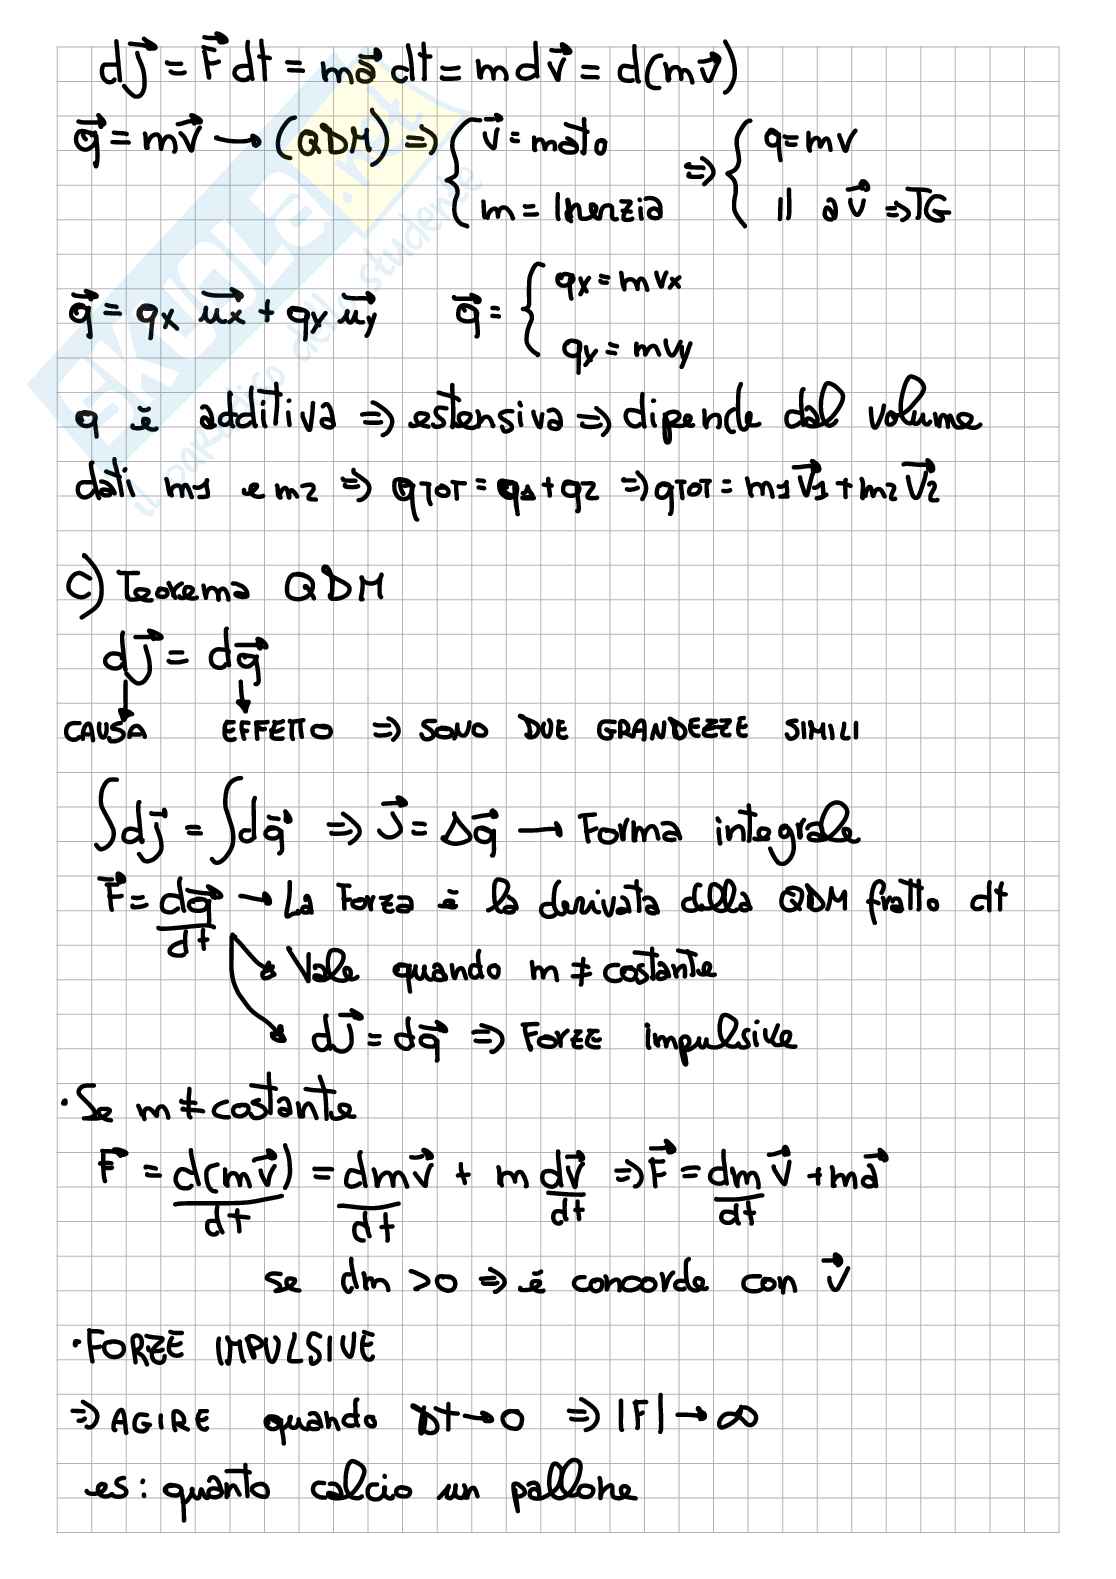 dJ⃗ = F⃗ dt = ma⃗ dt = m dv⃗ = d(mv⃗)
q⃗ = mv⃗ → (QDM) ⇒ { v⃗ = mato ⇒ { q = mv
m = Inerzia || a v⃗ ⇒ TG
q⃗ = qx u⃗x + qy u⃗y q⃗ = { qx = mvx
qy = mvy
q è additiva ⇒ estensiva ⇒ dipende dal volume
dati m1 e m2 ⇒ qTOT = q1 + q2 ⇒ qTOT = m1 V⃗1 + m2 V⃗2
C) Teorema QDM
dJ⃗ = dq⃗
CAUSA EFFETTO ⇒ SONO DUE GRANDEZZE SIMILI
∫dJ⃗ = ∫dq⃗ ⇒ J⃗ = Δq⃗ → Forma integrale
F⃗ = dq⃗/dt → La Forza è la derivata della QDM fratto dt
Vale quando m ≠ costante
dJ⃗ = dq⃗ ⇒ Forze Impulsive
• Se m ≠ costante
F⃗ = d(mv⃗)/dt = dm/dt v⃗ + m dv⃗/dt ⇒ F⃗ = dm/dt v⃗ + ma⃗
se dm > 0 ⇒ è concorde con v⃗
• FORZE IMPULSIVE
⇒ AGIRE quando Δt → 0 ⇒ |F| → ∞
es: quanto calcio un pallone
SKUOLA.net
il paradiso dello studente